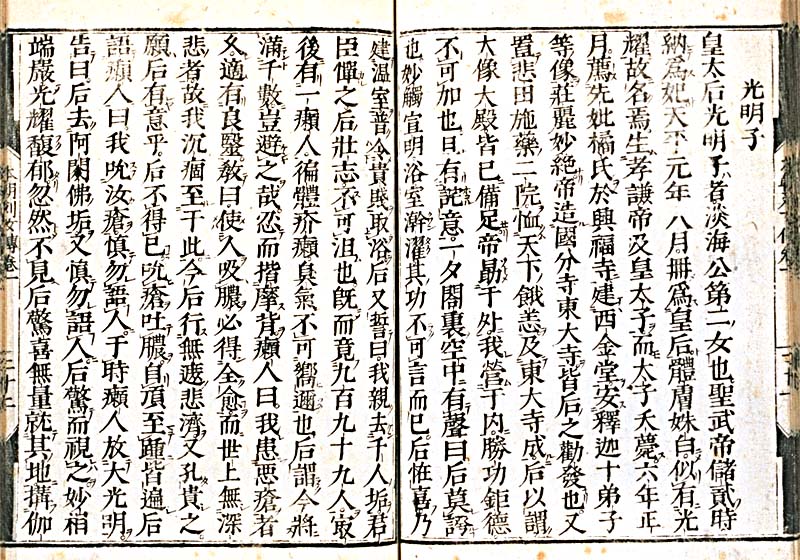 光明子
皇太后光明子者淡海公第二女也聖武帝儲貳時
納爲妃天平元年八月冊爲皇后體膚姝白似有光
耀故名焉生孝謙帝及皇太子而太子夭薨六年正
月薦先妣橘氏於興福寺建西金堂安釋迦十弟子
等像莊麗妙絶帝造國分寺東大寺皆后之勸發也又
置悲田施藥二院恤天下餓恙及東大寺成后以謂
大像大殿皆已備足帝勗于外我營于内勝功鉅德
不可加也且有詫意一夕閤裏空中有聲曰后莫誇
也妙觸宣明浴室澣濯其功不可言而已后恠喜乃
建温室普令貴賤取浴后又誓曰我親去千人垢君
臣憚之后壯志不可沮也既而竟九百九十九人㝡
後有一癩人徧體疥癩臭氣不可嚮邇也后謂今將
滿千數豈避之哉忍而揩摩背癩人曰我患惡瘡者
久適有良毉敎曰使人吸膿必得全愈而世上無深
悲者故我沉痼至于此今后行無遮悲濟又孔貴之
願后有意乎后不得已吮瘡吐膿自頂至踵皆遍后
語癩人曰我吮汝瘡愼勿語人于時癩人放大光明
告曰后去阿閦佛垢又愼勿語人后驚而視之妙相
端嚴光耀馥郁忽然不見后驚喜無量就其地搆伽